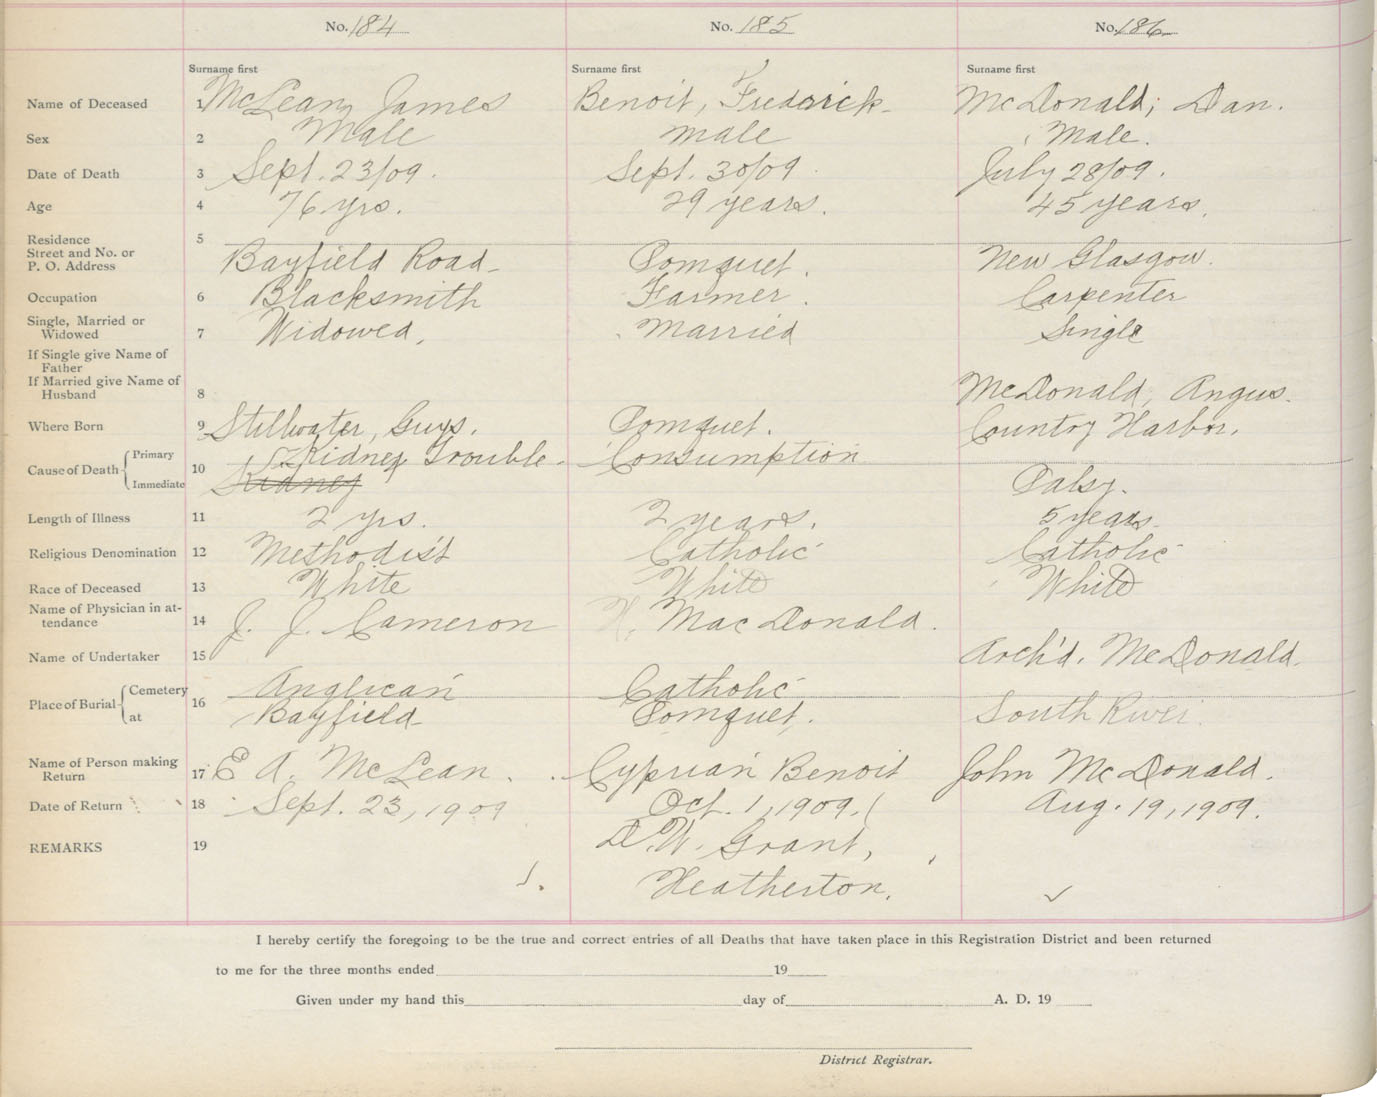 No. 184 No. 185 No. 186
Surname first Surname first Surname first
Name of Deceased 1 McLean, James Benoit, Frederick McDonald, Dan.
Sex 2 Male male Male.
Date of Death 3 Sept. 23/09. Sept. 30/09 July 28/09.
Age 4 76 yrs. 29 years. 45 years.
Residence 5
Street and No. or
P. O. Address Bayfield Road Pomquet. New Glasgow.
Occupation 6 Blacksmith Farmer. Carpenter
Single, Married or
Widowed 7 Widowed, Married Single
If Single give Name of
Father
If Married give Name of
Husband 8 McDonald, Angus.
Where Born 9 Stillwater, Guys. Pomquet. Country Harbor.
Cause of Death Primary 10 Kidney Trouble. Consumption
Immediate Kidney Palsy.
Length of Illness 11 2 yrs. 2 years. 5 years.
Religious Denomination 12 Methodist Catholic Catholic
Race of Deceased 13 White White White
Name of Physician in at-
tendance 14 J. J. Cameron W. MacDonald.
Name of Undertaker 15 Arch'd. McDonald.
Place of Burial Cemetery 16 Anglican Catholic
at Bayfield Pomquet. South River.
Name of Person making
Return 17 E A. McLean. Cyprian Benoit John McDonald.
Date of Return 18 Sept. 23, 1909 Oct. 1, 1909. Aug. 19, 1909.
REMARKS 19 D. W. Grant,
Heatherton.
I hereby certify the foregoing to be the true and correct entries of all Deaths that have taken place in this Registration District and been returned
to me for the three months ended 19
Given under my hand this day of A. D. 19
District Registrar.